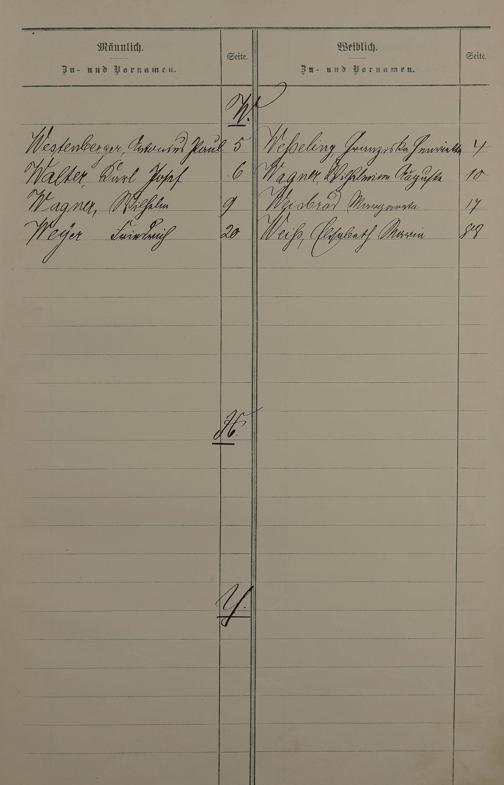 Männlich. Seite. Weiblich. Seite.
Zu- und Vornamen. Zu- und Vornamen.
W.
Westenberger, Paul 5 Wesseling, Franziska Henriette 4
Walter, Karl Josef 6 Wagner, Wilhelmine Auguste 10
Wagner, Wilhelm 9 Weisbrod Margareta 17
Weyer Friedrich 20 Weiß, Elisabeth Maria
X.
Y.